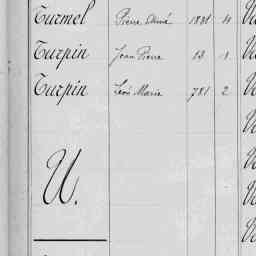 Turmel Pierre Aimé 1831 4
Turpin Jean Pierre 13 1
Turpin Léon Marie 781 2
U.